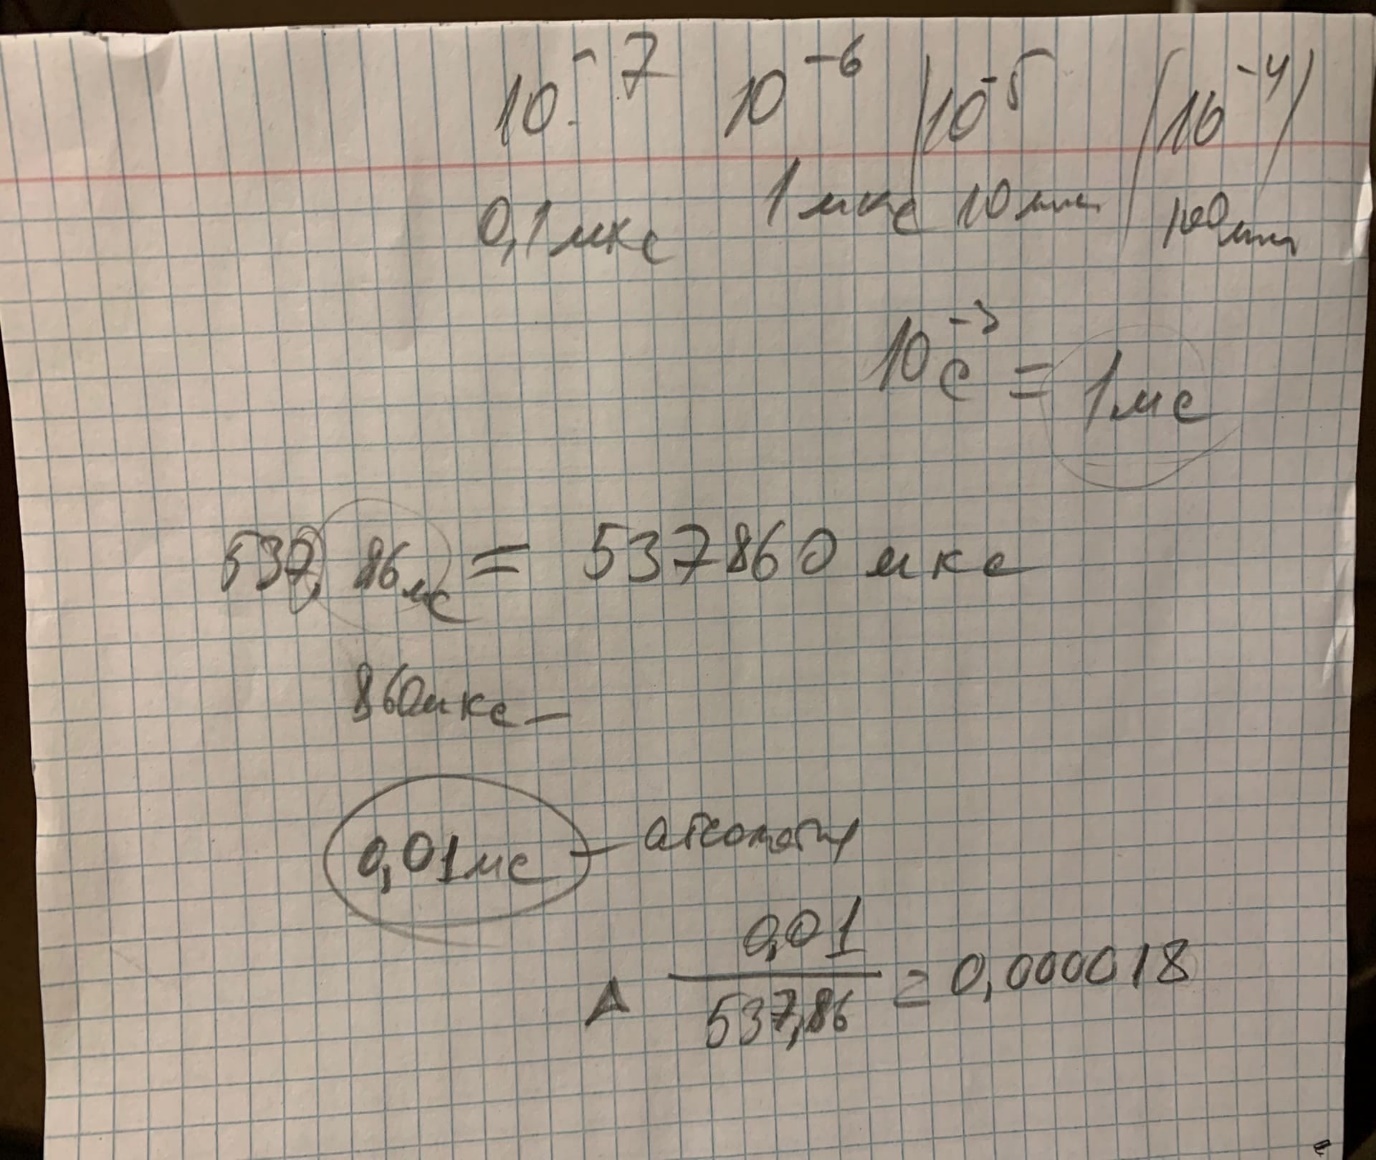 10⁻⁷ 10⁻⁶ 10⁻⁵ 10⁻⁴
0,1 мкс 1 мкс 10 мкс 100 мкс
10⁻³ с = 1 мс
537,86 мс = 537860 мкс
860 мкс —
0,01 мс —
0,01
Δ ——— = 0,000018
537,86